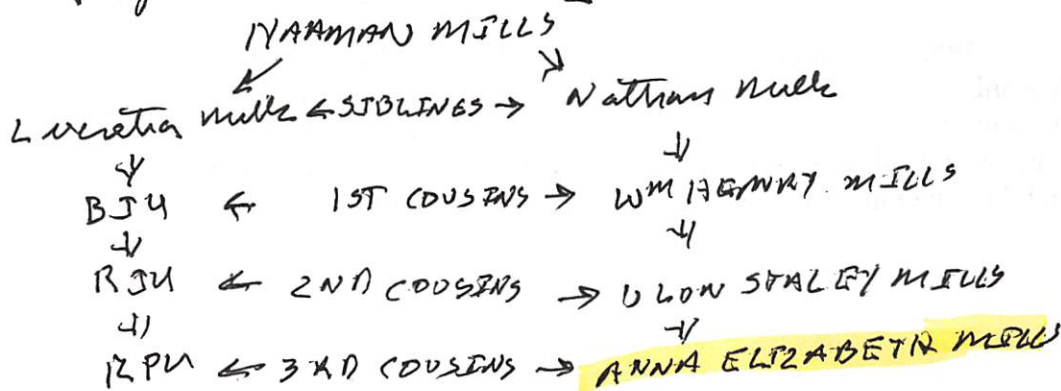 NAAMAN MILLS
Lucretia Mills ← SIBLINGS → Nathan Mills
BJU ← 1ST COUSINS → Wm HENRY MILLS
RJU ← 2ND COUSINS → ULON STALEY MILLS
RPU ← 3RD COUSINS → ANNA ELIZABETH MILLS